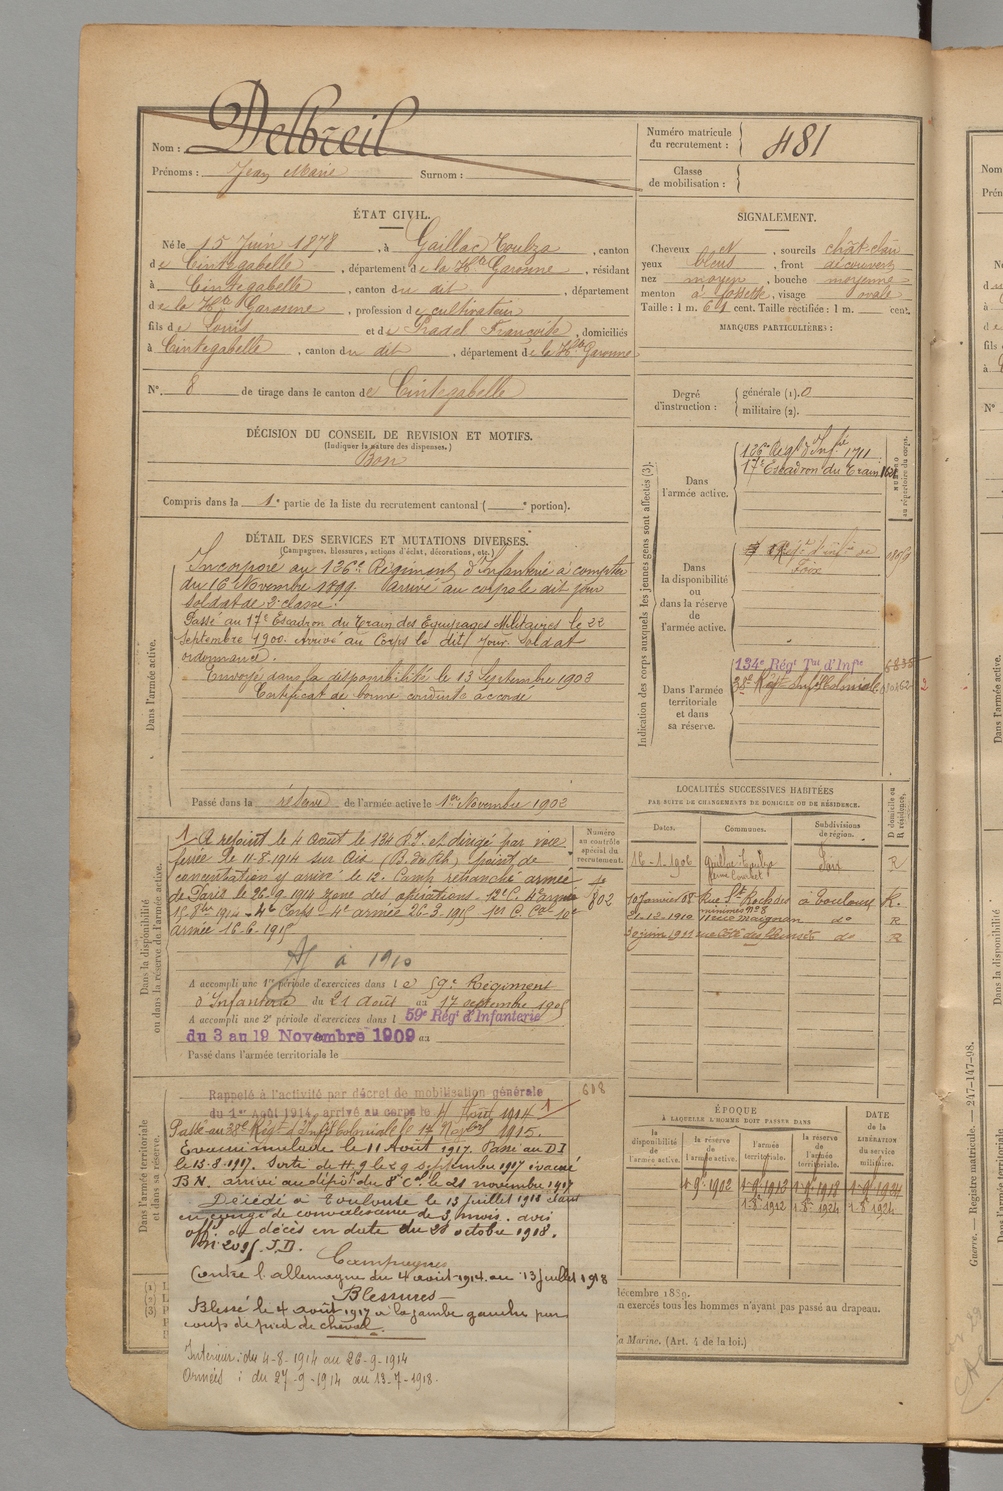 Nom : Delbreil
Prénoms : Jean Marie Surnom :
Numéro matricule du recrutement : 481
Classe de mobilisation :
ÉTAT CIVIL.
Né le 15 Juin 1878, à Gaillac Toulza, canton
de Cintegabelle, département de la Hte Garonne, résidant
à Cintegabelle, canton du dit, département
de la Hte Garonne, profession de cultivateur
fils de Louis et de Pradel Françoise, domiciliés
à Cintegabelle, canton du dit, département de la Hte Garonne
N° 8 de tirage dans le canton de Cintegabelle
DÉCISION DU CONSEIL DE REVISION ET MOTIFS.
(Indiquer la nature des dispenses.)
Bon
Compris dans la 1e partie de la liste du recrutement cantonal ( e portion).
SIGNALEMENT.
Cheveux , sourcils chât clair
yeux bleus, front découvert
nez moyen, bouche moyenne
menton à fossette, visage ovale
Taille : 1 m. 61 cent. Taille rectifiée : 1 m. cent.
MARQUES PARTICULIÈRES :
Degré d'instruction :
générale (1). 0
militaire (2).
DÉTAIL DES SERVICES ET MUTATIONS DIVERSES.
(Campagnes, blessures, actions d'éclat, décorations, etc.)
Dans l'armée active.
Incorporé au 136e Régiment d'Infanterie à compter
du 16 Novembre 1899. Arrivé au corps le dit jour
soldat de 2e classe.
Passé au 17e Escadron du Train des Equipages Militaires le 22
Septembre 1900. Arrivé au Corps le dit jour. Soldat
ordonnance.
Envoyé dans la disponibilité le 13 Septembre 1902
Certificat de bonne conduite accordé
Passé dans la réserve de l'armée active le 1er Novembre 1902
Indication des corps auxquels les jeunes gens sont affectés (3).
NUMÉRO au répertoire du corps.
Dans l'armée active.
136e Regt d'Infie 1711
17e Escadron du Train
Dans la disponibilité ou dans la réserve de l'armée active.
Foix
Dans l'armée territoriale et dans sa réserve.
134e Régt Tal d'Infie
38e Régt Infie Coloniale
LOCALITÉS SUCCESSIVES HABITÉES
PAR SUITE DE CHANGEMENTS DE DOMICILE OU DE RÉSIDENCE.
Dates. Communes. Subdivisions de région. D domicile ou R résidence.
16-1-1906 Gaillac-Toulza R
10 janvier 08 Rue St Roch des minimes n°8 à Toulouse R.
21-12-1910 11 rue Maignan do R
30 juin 1911 do R
Dans la disponibilité ou dans la réserve de l'armée active.
Numéro au contrôle spécial du recrutement.
802
A rejoint le 4 Août le 134 R.I. et dirigé par voie
ferrée le 11-8-1914 sur Aix (B. du Rh.) point de
concentration y arrivé le 12. Camp retranché armée
de Paris le 26-9-1914 zone des opérations. 12e C. 4e armée
4e Corps 4e armée 26-3-1915 1er C. Cal 10e
armée 16-6-1915
à 1910
A accompli une 1re période d'exercices dans le 59e Régiment
d'Infanterie du 21 août au 17 septembre 1905
A accompli une 2e période d'exercices dans l 59e Régt d'Infanterie
du 3 au 19 Novembre 1909 au
Passé dans l'armée territoriale le
Dans l'armée territoriale et dans sa réserve.
Rappelé à l'activité par décret de mobilisation générale 608
du 1er Août 1914, arrivé au corps le 4 Août 1914
Passé au 38e Régt d'Infie Coloniale le 1915.
Evacué malade le 11 Août 1917. Passé au DI
le 13.8.1917. Sorti de H.9 le 29 septembre 1917 évacué
BN. arrivé au dépôt du 8e Cal le 21 novembre 1917
Décédé à Toulouse le 13 juillet 1918 étant
en congé de convalescence de 3 mois. avis
offel de décès en date du 28 octobre 1918.
Campagnes
Contre l'allemagne du 4 août 1914 au 13 juillet 1918
Blessures
Blessé le 4 août 1917 à la jambe gauche par
coup de pied de cheval.
Intérieur : du 4-8-1914 au 26-9-1914
Armées : du 27-9-1914 au 13-7-1918.
ÉPOQUE
À LAQUELLE L'HOMME DOIT PASSER DANS
DATE de la LIBÉRATION du service militaire.
la disponibilité de l'armée active. la réserve de l'armée active. l'armée territoriale. la réserve de l'armée territoriale.
1-9-1902 1-9-1912 1-9-1918 1-9-1924
1-8-1912 1-8-1924 1-8-1924
décembre 1889.
n exercés tous les hommes n'ayant pas passé au drapeau.
la Marine. (Art. 4 de la loi.)
Guerre. — Registre matricule. — 247-147-98.